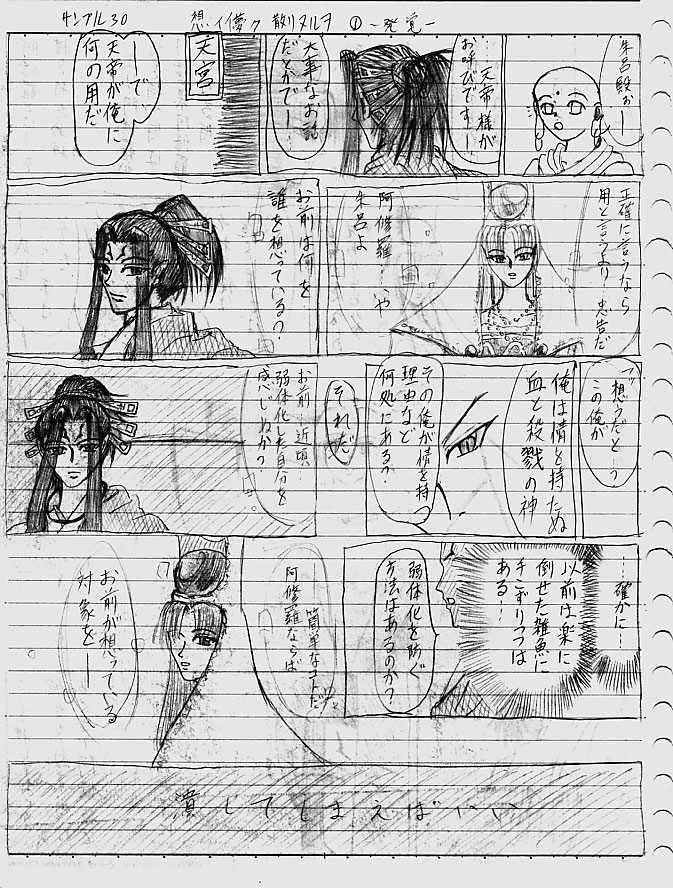 サンプル30
想イ儚ク散リヌルヲ ①-発覚-
朱呂殿ぉー
……天帝様が
お呼びですー
大事なお話
だとかでー…
天宮
ーで…
天帝が俺に
何の用だ
正確に言うなら
用と言うより…忠告だ
阿修羅…いや
朱呂よ
お前は何を
誰を想っている?
想うだと…?
この俺が
俺は情を持たぬ
血と殺戮の神
その俺が情を持つ
理由など
何処にある?
それだ
お前…近頃…
弱体化した自分を
感じぬか?
……確かに…
以前は楽に
倒せた雑魚に
手こずりつつは
ある…
弱体化を防ぐ
方法はあるのか?
―簡単なコトだ
阿修羅ならば
お前が想っている
対象を――
潰してしまえばいい